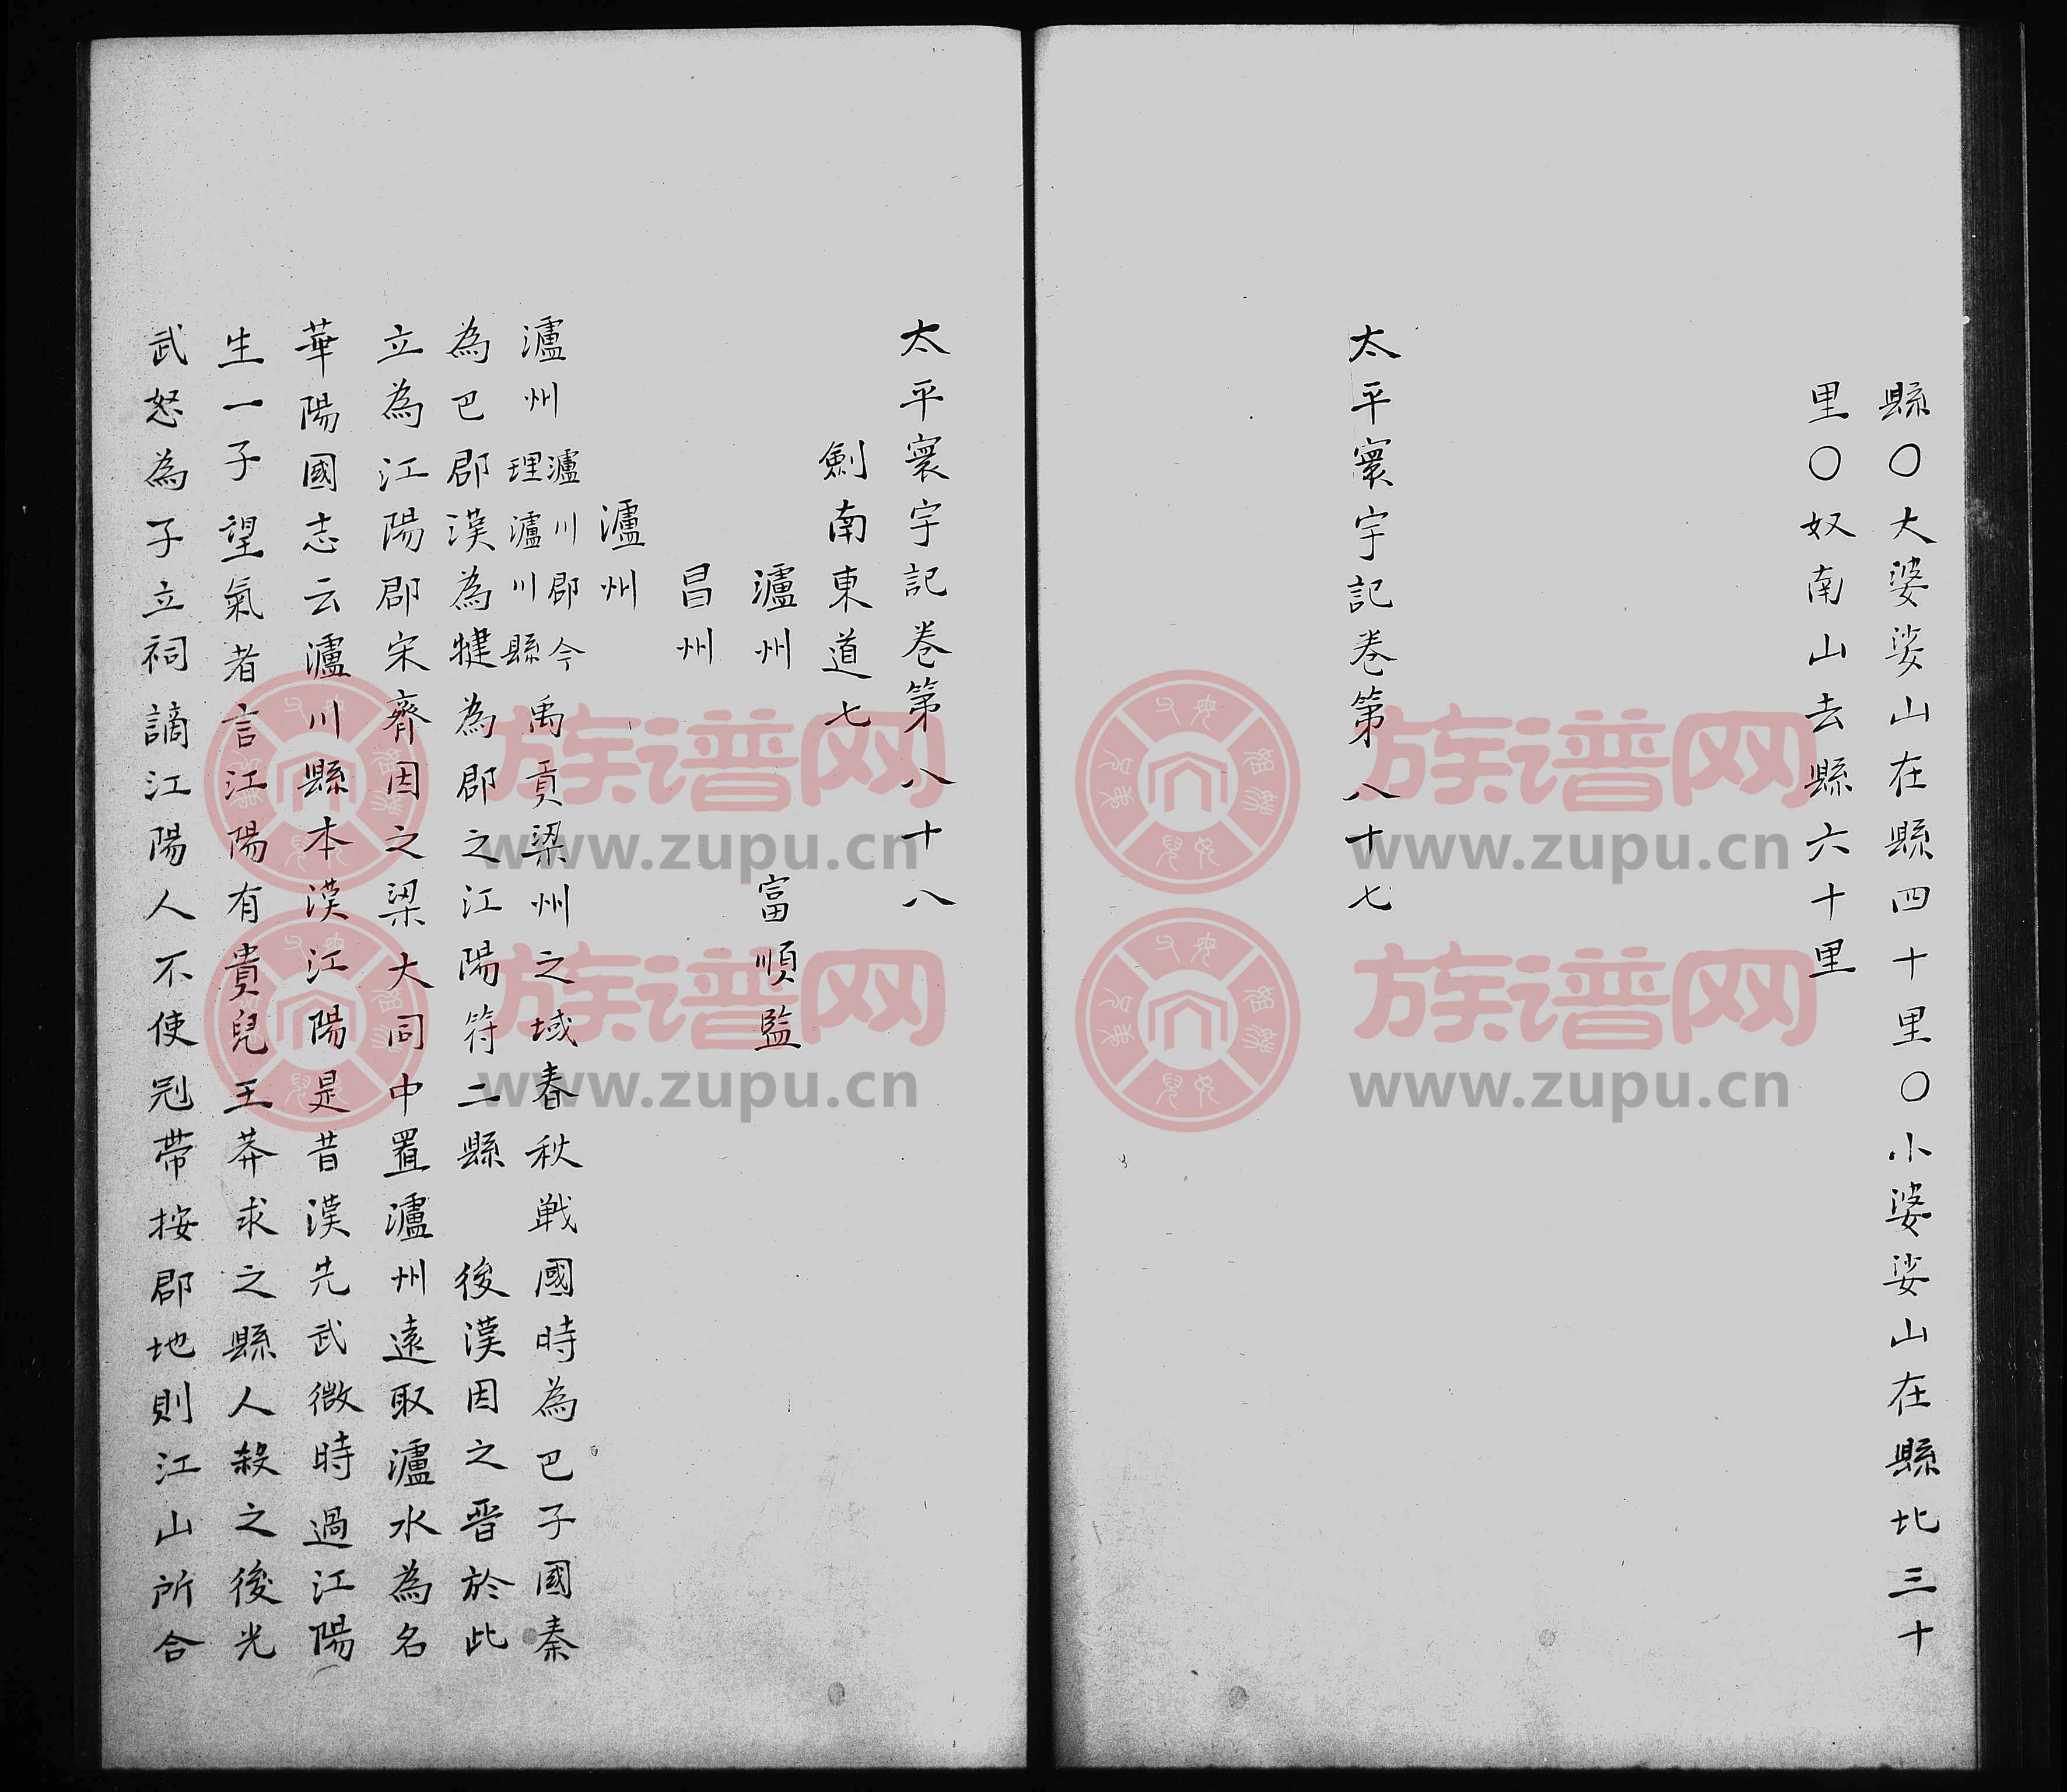 縣〇大婆娑山在縣四十里〇小婆娑山在縣北三十
里〇奴南山去縣六十里
太平寰宇記卷第八十七
太平寰宇記卷第八十八
劍南東道七
瀘州 富順監
昌州
瀘州
瀘州瀘川郡今理瀘川縣禹貢梁州之域春秋戦國時為巴子國秦
為巴郡漢為犍為郡之江陽符二縣 後漢因之晋於此
立為江陽郡宋齊因之梁大同中置瀘州遠取瀘水為名
華陽國志云瀘川縣本漢江陽是昔漢先武微時過江陽
生一子望氣者言江陽有貴兒王莽求之縣人殺之後光
武怒為子立祠謫江陽人不使冠帶按郡地則江山所合
族谱网
www.zupu.cn
族谱网
www.zupu.cn
族谱网
www.zupu.cn
族谱网
www.zupu.cn